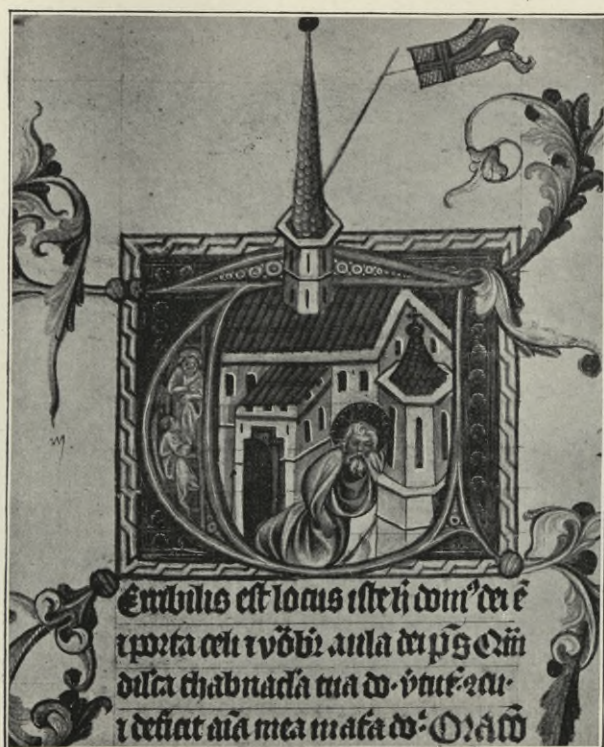 Erribilis est locus iste h̄ domꝰ dei ē
⁊ porta celi ⁊ vōbr̄ aula dei p̄s Qm̄
dilca thabnacla tua do· v̄tut̄· ⁊cu·
⁊ deficit aīa mea in do· Oracō